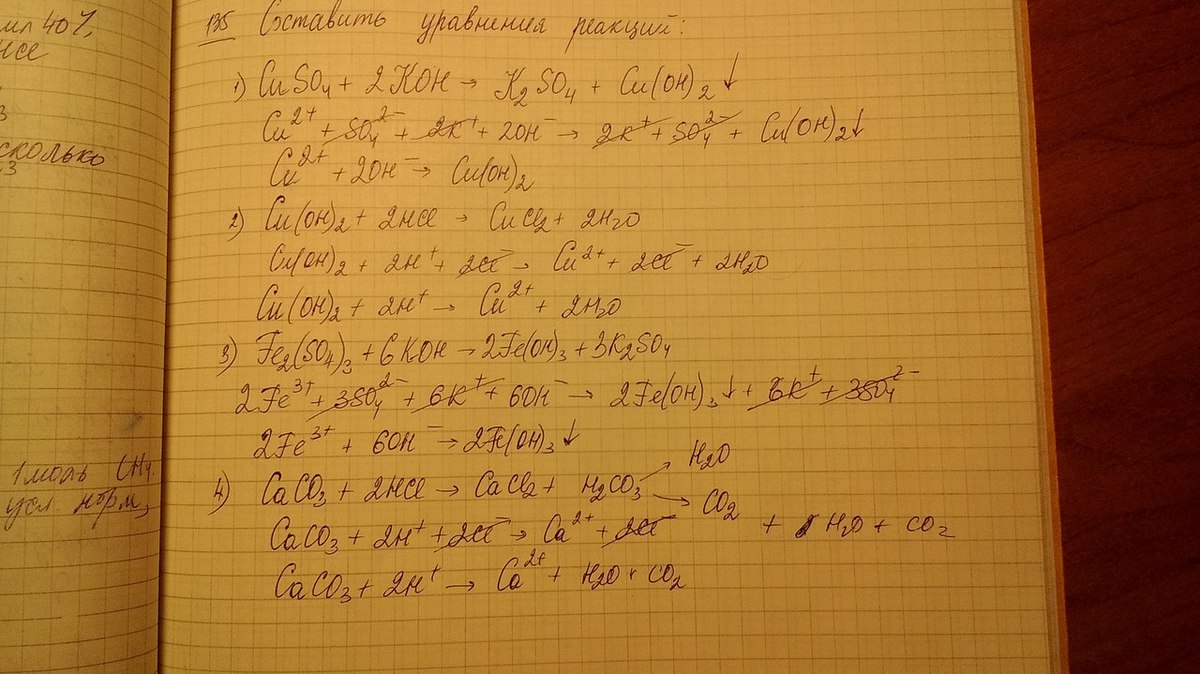 мл 40%,
HCl
3
сколько
1 моль CH4.
усл. норм,
135 Составить уравнения реакций:
1) CuSO4 + 2KOH → K2SO4 + Cu(OH)2↓
Cu²⁺ + SO4²⁻ + 2K⁺ + 2OH⁻ → 2K⁺ + SO4²⁻ + Cu(OH)2↓
Cu²⁺ + 2OH⁻ → Cu(OH)2
2) Cu(OH)2 + 2HCl → CuCl2 + 2H2O
Cu(OH)2 + 2H⁺ + 2Cl⁻ → Cu²⁺ + 2Cl⁻ + 2H2O
Cu(OH)2 + 2H⁺ → Cu²⁺ + 2H2O
3) Fe2(SO4)3 + 6KOH → 2Fe(OH)3 + 3K2SO4
2Fe³⁺ + 3SO4²⁻ + 6K⁺ + 6OH⁻ → 2Fe(OH)3↓ + 6K⁺ + 3SO4²⁻
2Fe³⁺ + 6OH⁻ → 2Fe(OH)3↓
4) CaCO3 + 2HCl → CaCl2 + H2CO3 → H2O
→ CO2
CaCO3 + 2H⁺ + 2Cl⁻ → Ca²⁺ + 2Cl⁻ + H2O + CO2
CaCO3 + 2H⁺ → Ca²⁺ + H2O + CO2